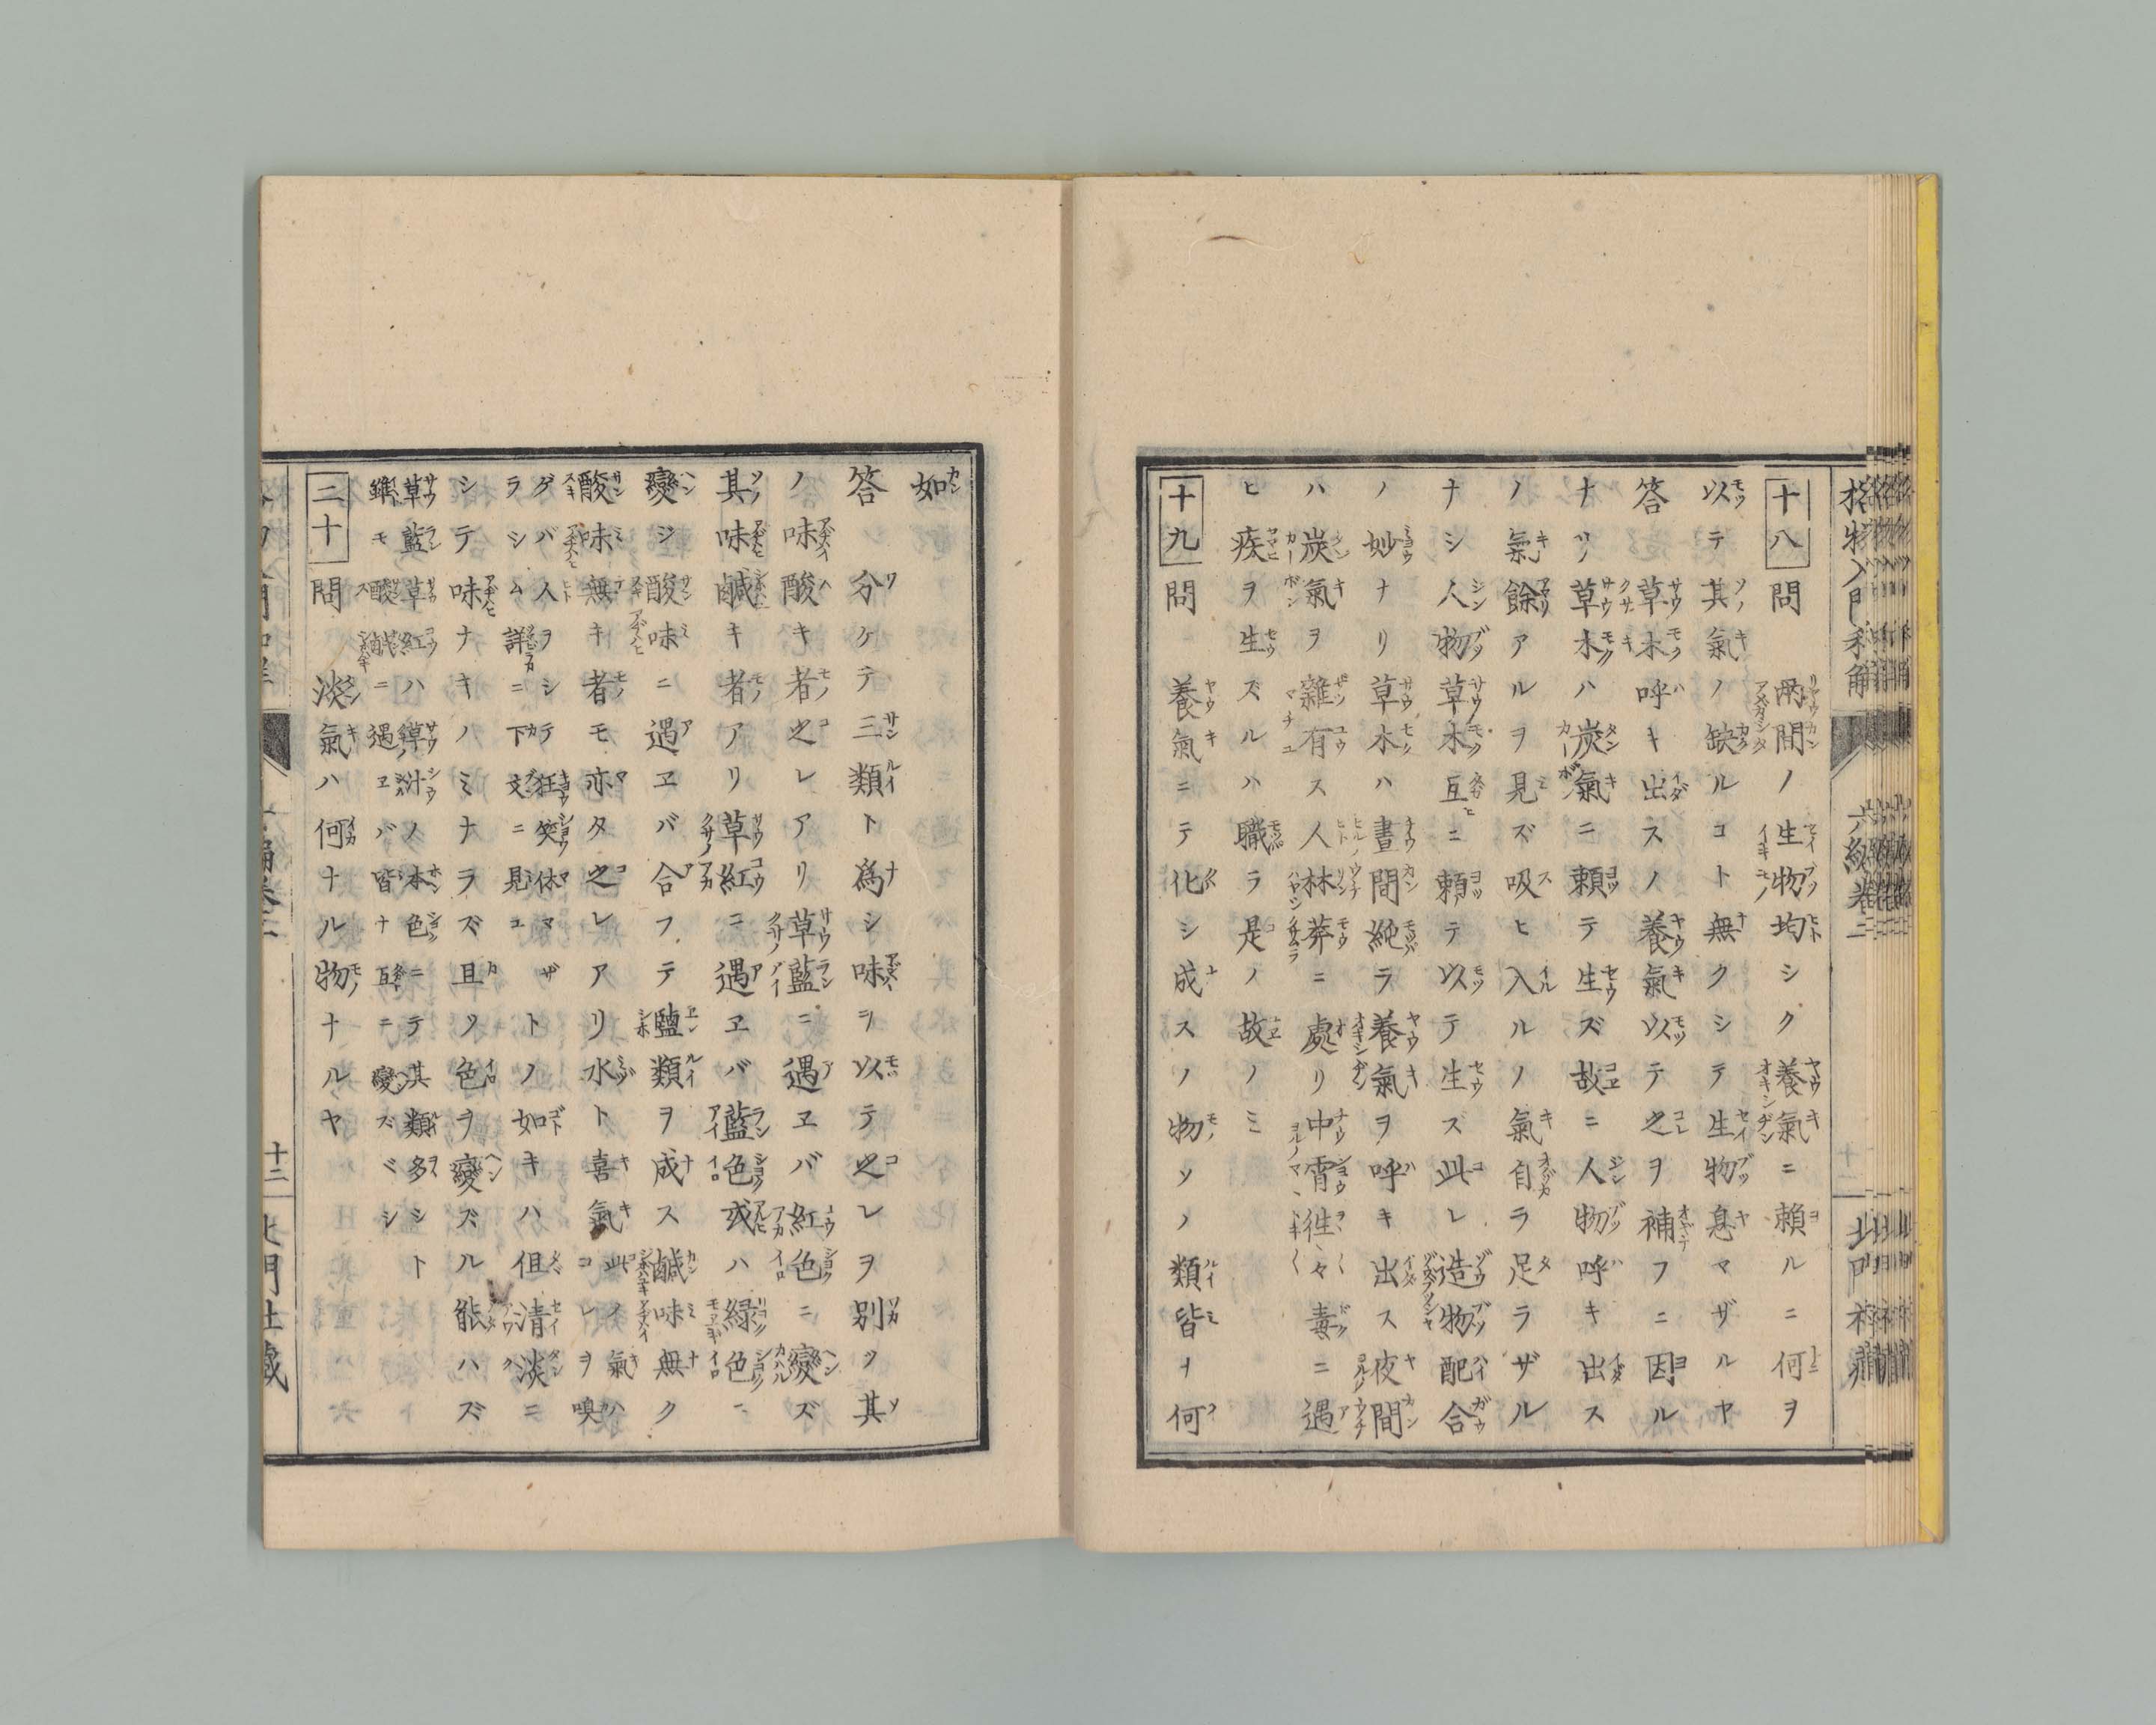 十八 問 兩間ノ生物均シク養氣ニ賴ルニ何ヲ
以テ其氣ノ缺ルコト無クシテ生物息マザルヤ
答 草木呼キ出スノ養氣以テ之ヲ補フニ因ル
ナリ草木ハ炭氣ニ賴テ生ズ故ニ人物呼キ出ス
ノ氣餘アルヲ見ズ吸ヒ入ルノ氣自ラ足ラザル
ナシ人物草木互ニ賴テ以テ生ズ此レ造物配合
ノ妙ナリ草木ハ晝間純ラ養氣ヲ呼キ出ス夜間
ハ炭氣ヲ雜有ス人林莽ニ處リ中宵徃々毒ニ遇
ヒ疾ヲ生ズルハ職ラ是ノ故ノミ
十九 問 養氣ニテ化シ成スノ物ソノ類皆ナ何
如
答 分ケテ三類ト爲シ味ヲ以テ之レヲ別ツ其
ノ味酸キ者之レアリ草藍ニ遇ヱバ紅色ニ變ズ
其味鹹キ者アリ草紅ニ遇ヱバ藍色或ハ緑色ニ
變シ酸味ニ遇ヱバ合フテ鹽類ヲ成ス鹹味無ク
酸味無キ者モ亦タ之レアリ水ト喜氣此氣コレヲ嗅
グバ人ヲシテ狂笑休マザラシム詳ニ下文ニ見ユトノ如キハ但清淡ニ
シテ味ナキノミナラズ且ツ色ヲ變ズル能ハズ
草藍草紅ハ草汁ノ本色ニテ其類多シト
雖モ酸鹹ニ遇ヱバ皆ナ互ニ變ズベシ
二十 問 淡氣ハ何ナル物ナルヤ
十二